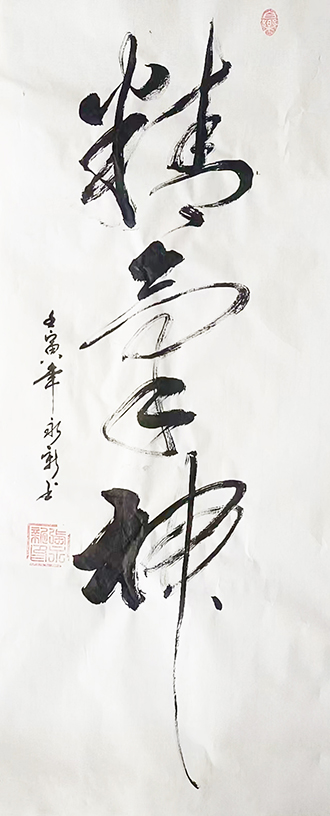 精气神
壬寅年永新书